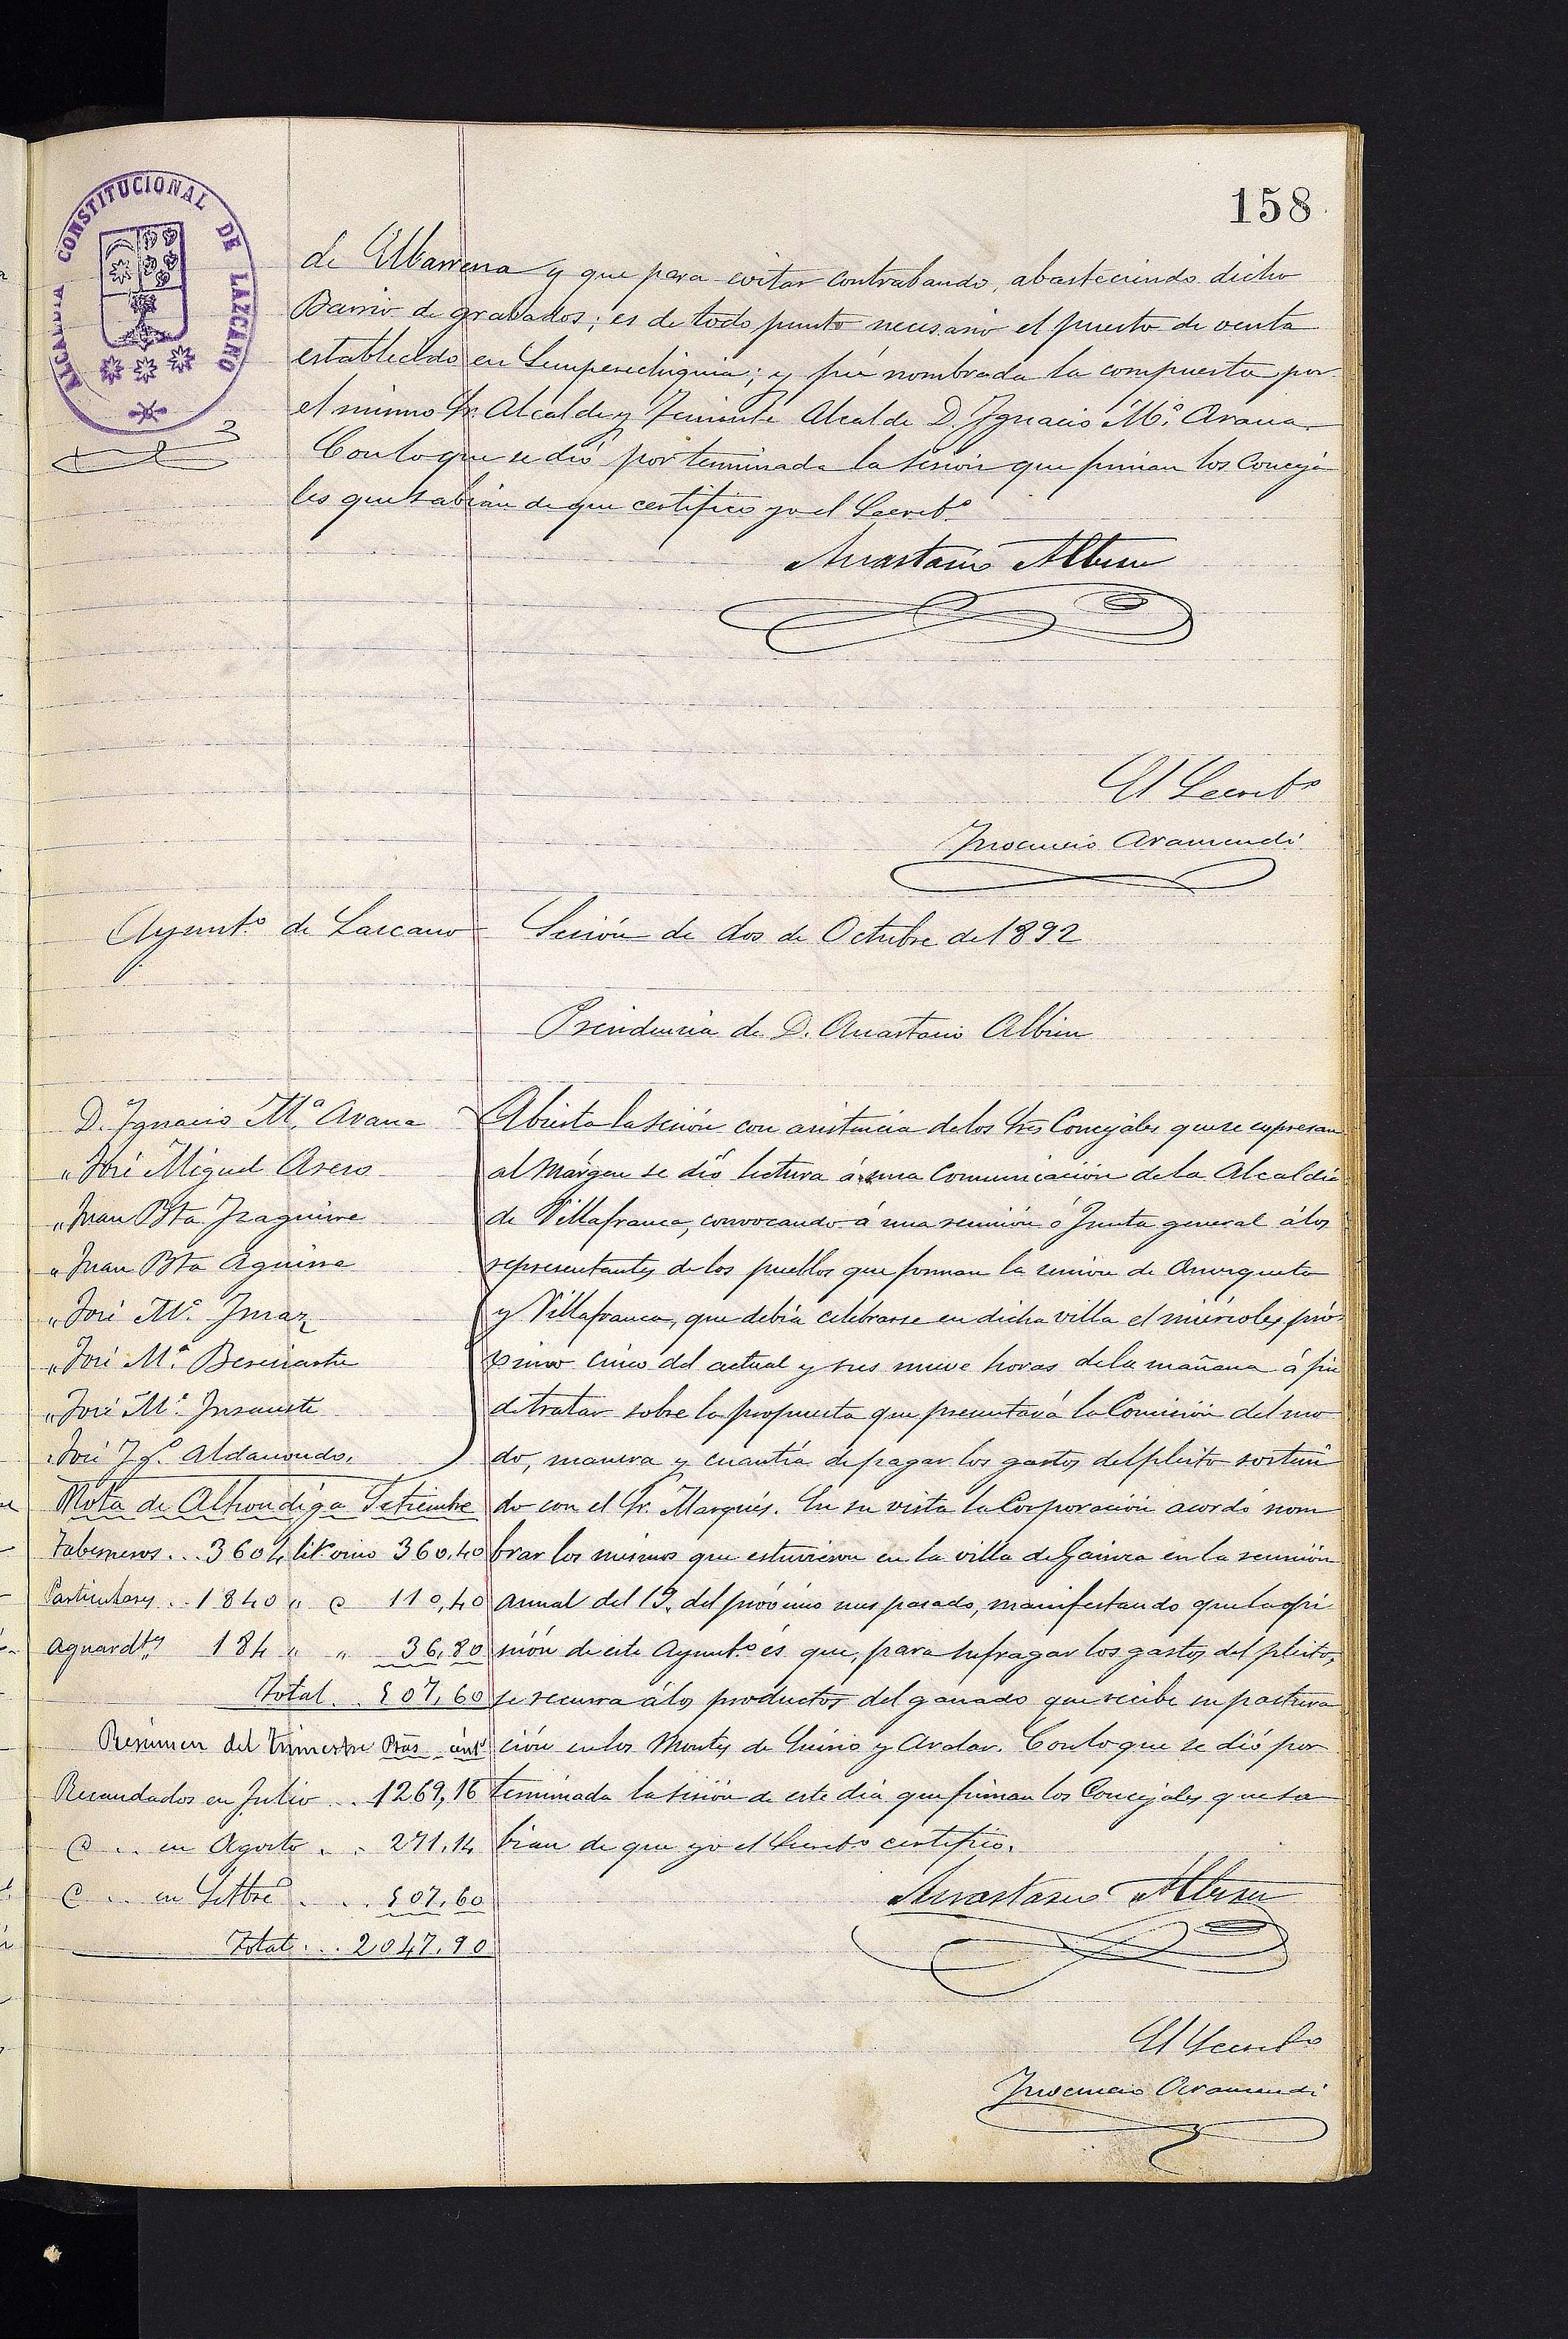 158
ALCALDIA CONSTITUCIONAL DE LAZCANO
de Elbarrena y que para evitar contrabando, abasteciendo dicho
Barrio de grabados; es de todo punto necesario el puesto de venta
establecido en Semperechiquia; y fué nombrada la compuesta por
el mismo Sr. Alcalde y Teniente Alcalde D. Ignacio M.ª Arana.
Con lo que se dió por terminada la sesión que firman los Conceja
les que sabian de que certifico yo el Secret.º
Anastasio Albisu
El Secret.º
Inocencio Aramendi
Ayunt.º de Lascano
Sesión de dos de Octubre de 1892
Presidencia de D. Anastasio Albisu
D. Ignacio M.ª Arana
" José Miguel Asero
" Juan Bta Izaguirre
" Juan Bta Aguirre
" José M.ª Imaz
" José M.ª Bereciartu
" José M.ª Insausti
" José Ig.º Aldasoro.
Nota de Alhondiga Setiembre
Taberneros ... 3604 lit.s vino 360,40
Particulares .. 1840 " @ 110,40
Aguard.tes 184 " " 36,80
Total .. 507,60
Resúmen del trimestre Ptas cént.s
Recaudados en Julio ... 1269,16
@ .. en Agosto . . 271,14
@ .. en Setbre . . . 507,60
Total ... 2047,90
Abierta la sesión con asistencia de los Sres Concejales que se expresan
al márgen se dió lectura á una Comunicación de la Alcaldia
de Villafranca, convocando á una reunión ó Junta general á los
representantes de los pueblos que forman la union de Amezqueta
y Villafranca, que debia celebrarse en dicha villa el miércoles pró-
ximo cinco del actual y sus nueve horas de la mañana á fin
de tratar sobre la propuesta que presentará la Comisión del mo
do, manera y cuantía de pagar los gastos del pleito sosteni
do con el Sr. Marqués. En su vista la Corporación acordó nom
brar los mismos que estuvieron en la villa de Gainza en la reunión
anual del 19. del próximo mes pasado, manifestando que la opi
nión de este Ayunt.º és que, para sufragar los gastos del pleito,
se recurra á los productos del ganado que recibe su pastura
ción en los Montes de Enirio y Aralar. Con lo que se dió por
terminada la sesión de este dia que firman los Concejales que sa
bian de que yo el Secret.º certifico.
Anastasio Albisu
El Secret.º
Inocencio Aramendi